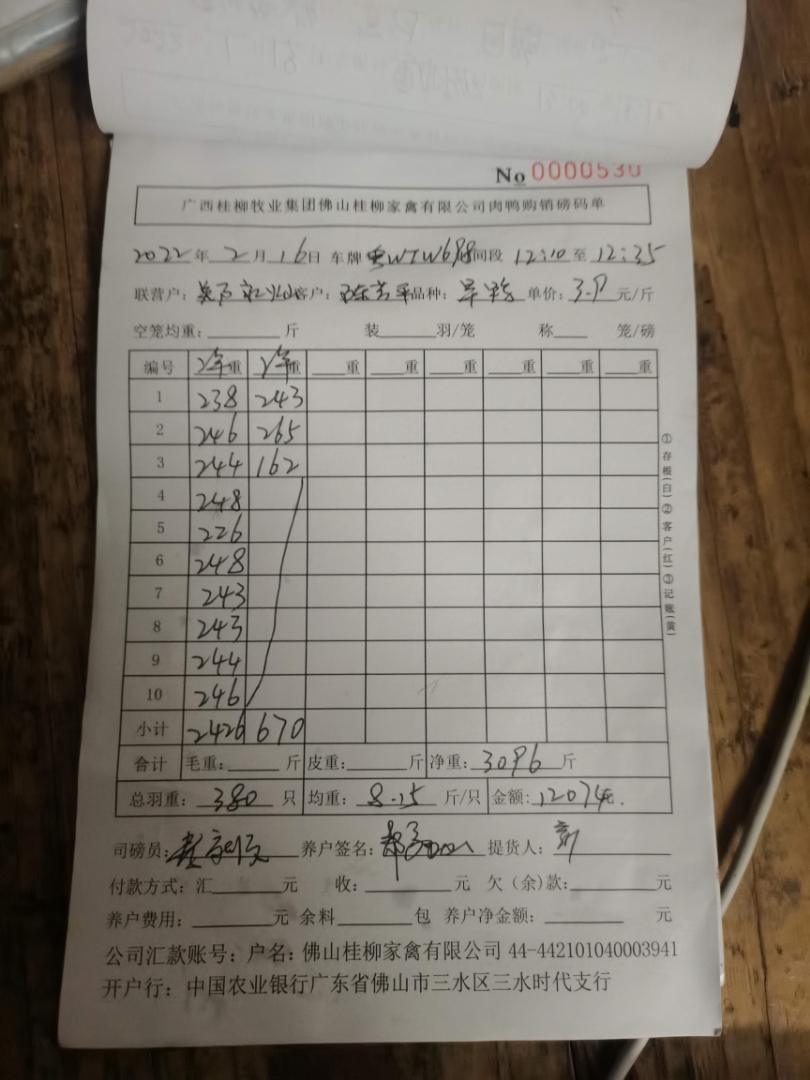 No 0000530
广西桂柳牧业集团佛山桂柳家禽有限公司肉鸭购销磅码单
2022年2月16日 车牌 WTW698 间段 12:10至12:35
联营户: 客户: 品种: 单价:3.9元/斤
空笼均重: 斤 装 羽/笼 称 笼/磅
编号 净重 净重 重 重 重 重 重 重
1 238 243
2 246 265
3 244 162
4 248
5 226
6 248
7 243
8 243
9 244
10 246
小计 2426 670
合计 毛重: 斤 皮重: 斤 净重:3096斤
总羽重:380只 均重:8.15斤/只 金额:12074元.
司磅员: 养户签名: 提货人:
付款方式:汇 元 收: 元 欠(余)款: 元
养户费用: 元 余料 包 养户净金额: 元
公司汇款账号:户名:佛山桂柳家禽有限公司 44-442101040003941
开户行:中国农业银行广东省佛山市三水区三水时代支行
①存根(白)②客户(红)③记账(黄)